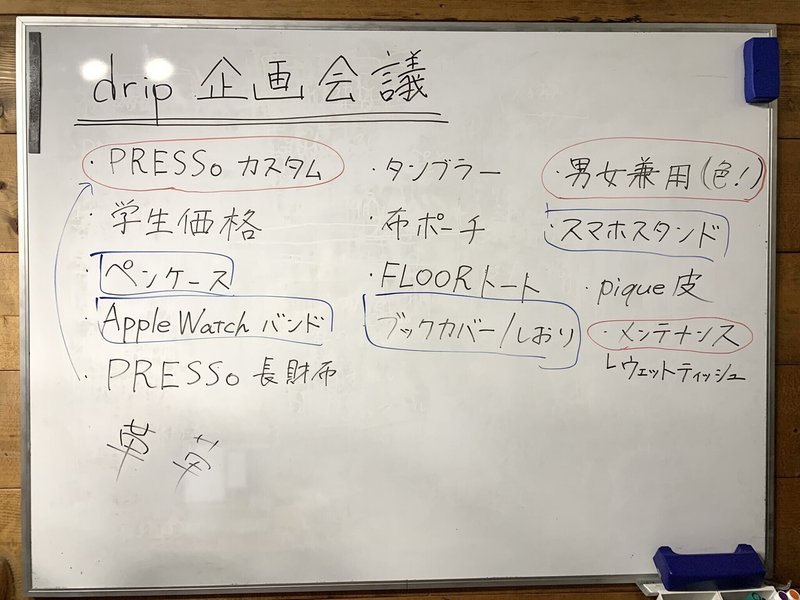 drip 企画会議
・PRESSo カスタム
・学生価格
・ペンケース
・Apple Watch バンド
・PRESSo 長財布
・タンブラー
・布ポーチ
・FLOORトート
・ブックカバー/しおり
・男女兼用(色!)
・スマホスタンド
・pique皮
・メンテナンス
└ウェットティッシュ
革